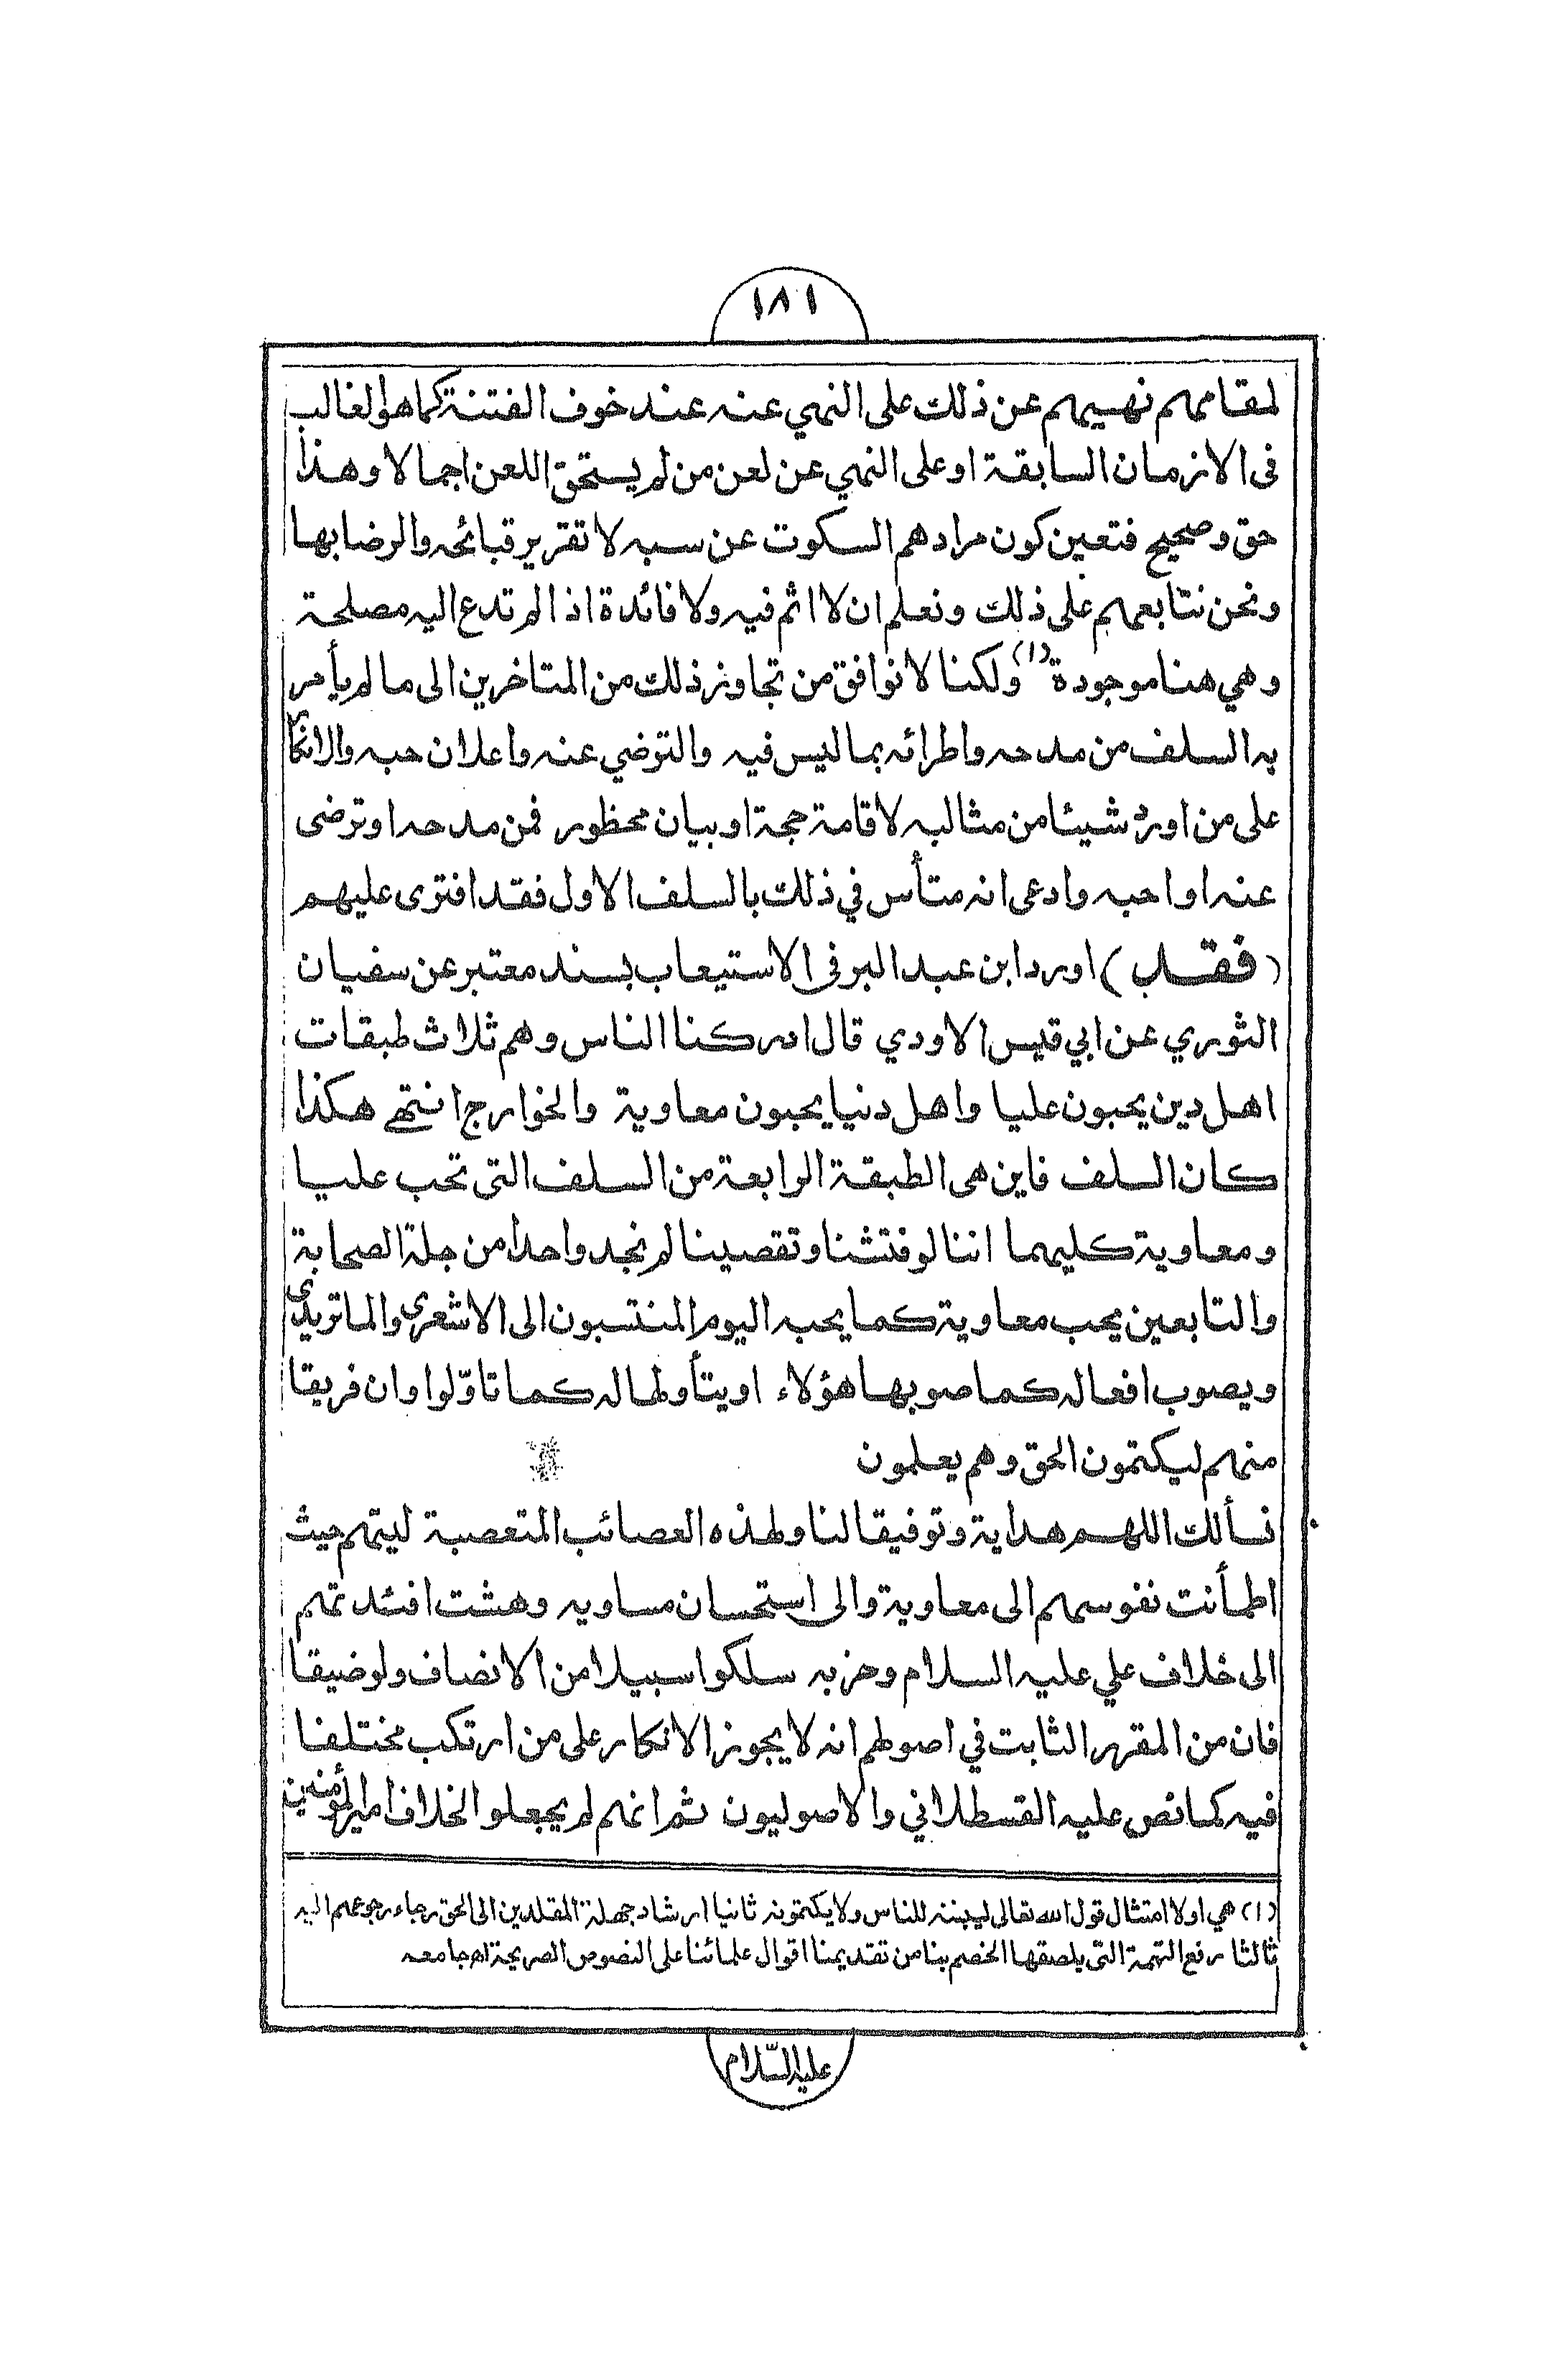 ١٨١
لمقامهم نهيهم عن ذلك على النهي عنه عند خوف الفتنة كما هو الغالب
فى الازمان السابقة او على النهي عن لعن من لم يستحق اللعن اجمالا وهذا
حق وصحيح فتعين كون مرادهم السكوت عن سبه لا تقرير قبائحه والرضا بها
ونحن نتابعهم على ذلك ونعلم ان لا اثم فيه ولا فائدة اذا لم تدع اليه مصلحة
وهي هنا موجودة (١) ولكنا لا نوافق من تجاوز ذلك من المتاخرين الى ما لم يأمر
به السلف من مدحه واطرائه بما ليس فيه والترضي عنه واعلان حبه والانكار
على من اورد شيئا من مثالبه لاقامة حجة او بيان محظور فمن مدحه او ترضى
عنه او احبه وادعى انه متأس في ذلك بالسلف الاول فقد افترى عليهم
(فقد) اورد ابن عبد البر فى الاستيعاب بسند معتبر عن سفيان
الثوري عن ابي قيس الاودي قال ادركنا الناس وهم ثلاث طبقات
اهل دين يحبون عليا واهل دنيا يحبون معاوية والخوارج انتهى هكذا
كان السلف فاين هى الطبقة الرابعة من السلف التى تحب عليا
ومعاوية كليهما اننا لو فتشنا وتقصينا لم نجد واحدا من جلة الصحابة
والتابعين يحب معاوية كما يحبه اليوم المنتسبون الى الاشعري والماتريدي
ويصوب افعاله كما صوبها هؤلاء او يتأولها له كما تاوّلوا وان فريقا
منهم ليكتمون الحق وهم يعلمون
نسألك اللهم هداية وتوفيقا لنا ولهذه العصائب المتعصبة ليتهم حيث
اطمأنت نفوسهم الى معاوية والى استحسان مساويه وهشت افئدتهم
الى خلاف علي عليه السلام وحزبه سلكوا سبيلا من الانصاف ولو ضيقا
فان من المقرر الثابت في اصولهم انه لا يجوز الانكار على من ارتكب مختلفا
فيه كما نص عليه القسطلاني والاصوليون ثم انهم لم يجعلو الخلاف امير المؤمنين
(١) هي اولا امتثال قول الله تعالى ليبيننه للناس ولا يكتمونه ثانيا ارشاد جهلة المقلدين الى الحق رجاء رجوعهم اليه
ثالثا رفع التهمة التى يلصقها الخصم بنا من تقديمنا اقوال علمائنا على النصوص الصريحة اه جامعه
عليه السّلام